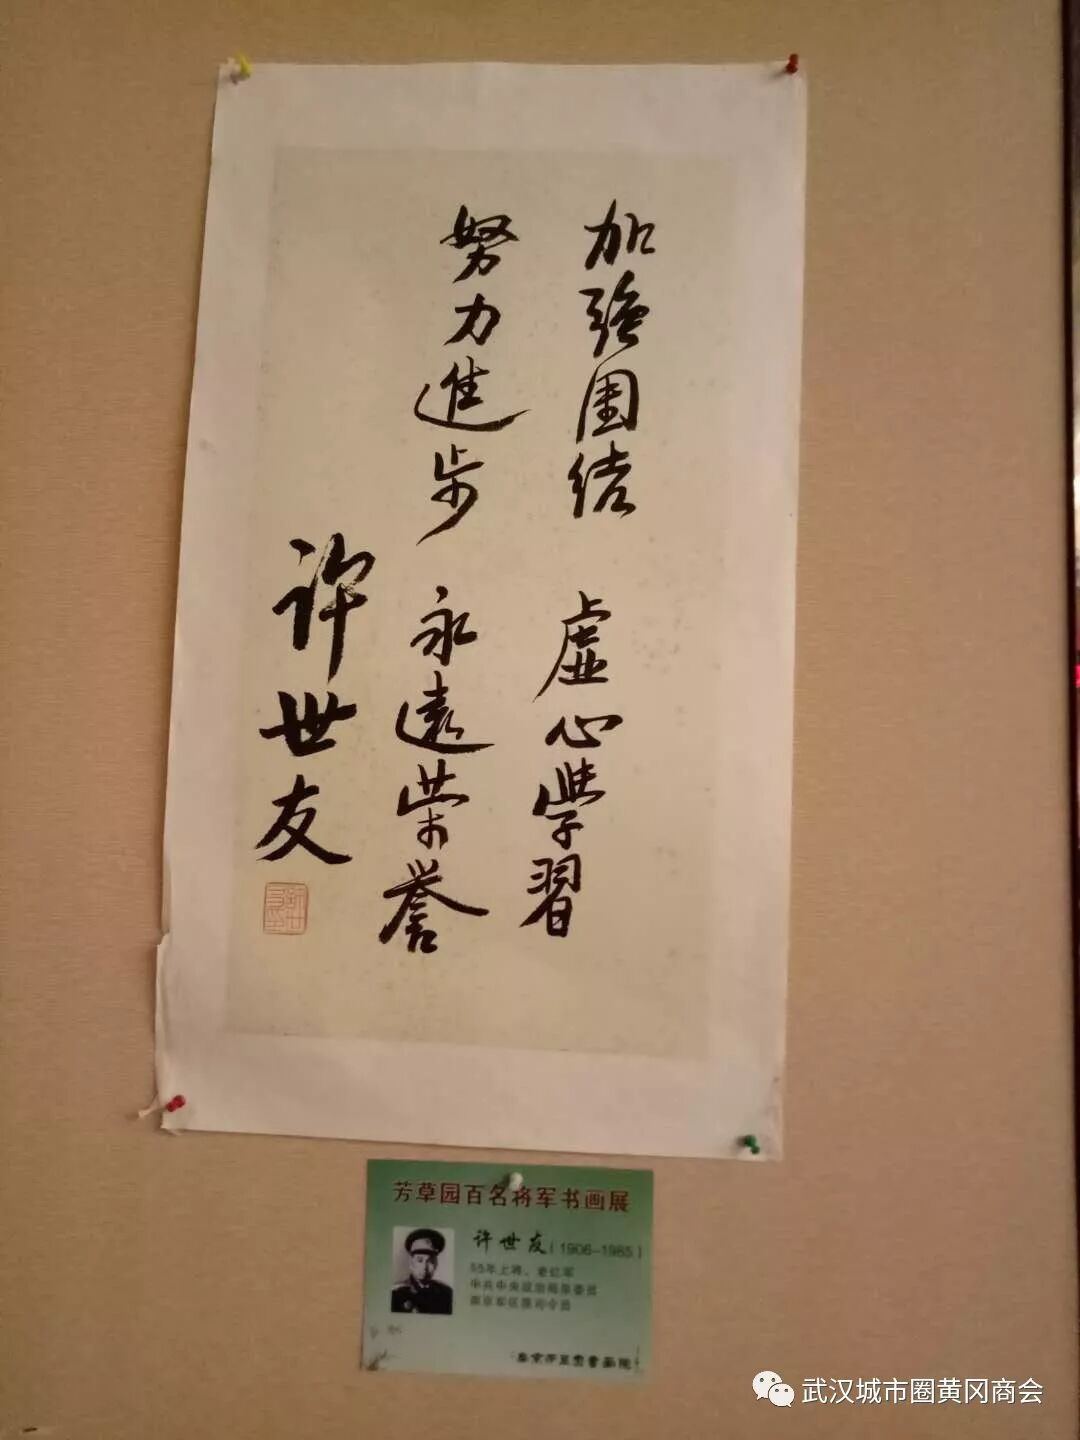 加強團结 虚心學習
努力進步 永遠荣誉
许世友
芳草园百名将军书画展
许世友(1906-1985)
55年上将、老红军
中共中央政治局原委员
南京军区原司令员
武汉城市圈黄冈商会